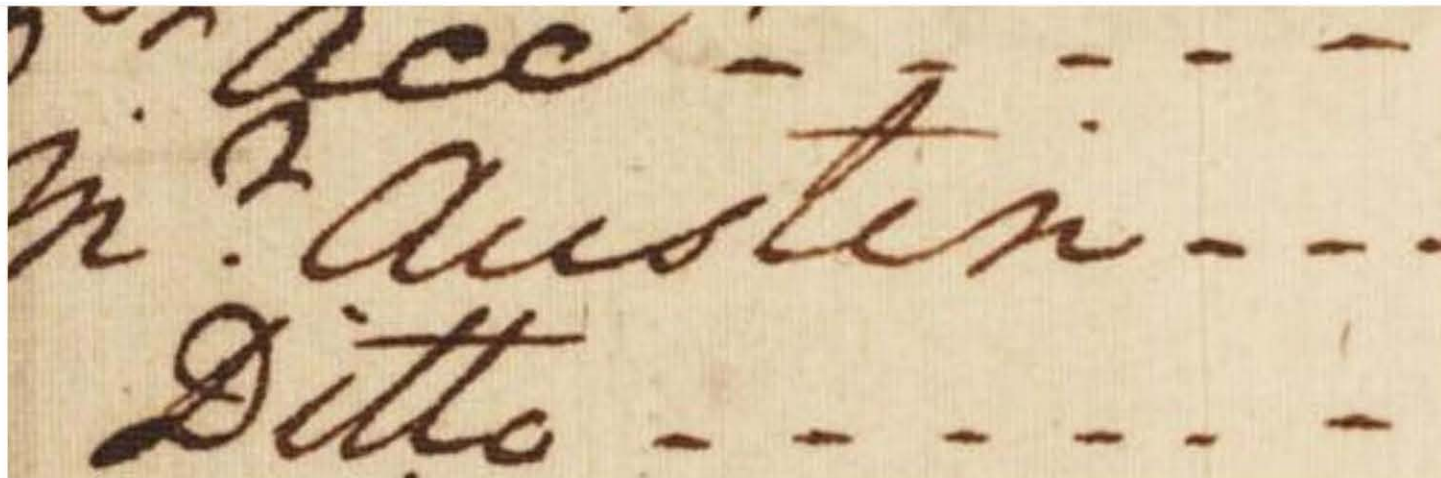 acct - - - - -
Mr. Austin - - -
Ditto - - - - - -